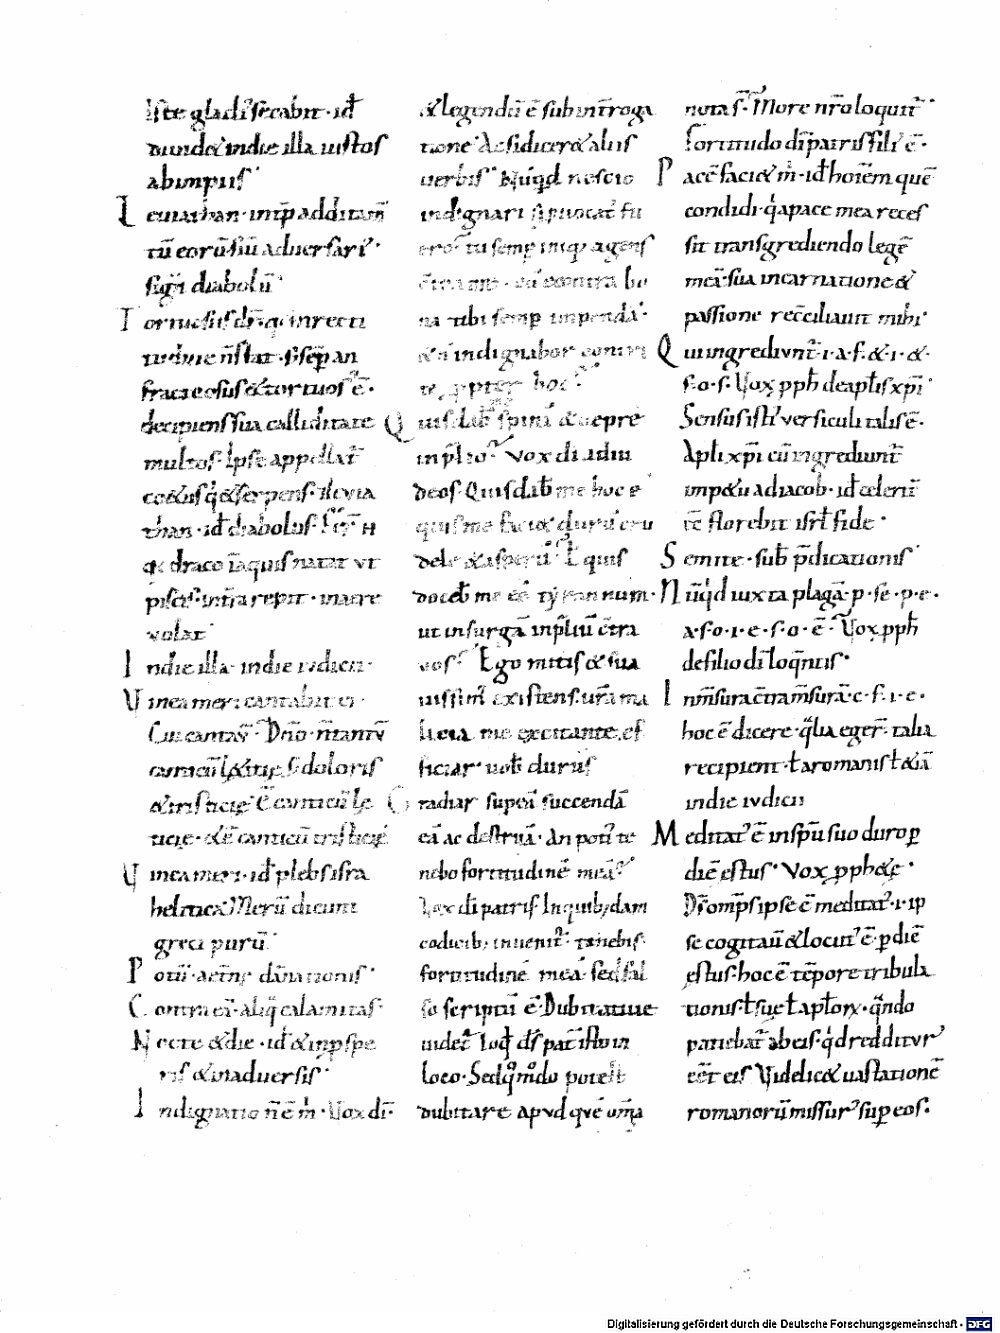 Iste gladiꝰ secabit · id̄
diuid& indie illa iustos
abimpiis ·
Leuiathan · int̄p additam̄
tū eorū · siū aduersariꝰ ·
sig̅t diabolū ·
Tortuosus dr̄ · q̇ inrecti
tudine n̄ stat · s; sep̄ an
fractuosus & tortuosꝰ ē ·
decipiens sua calliditate
multos · Ipse appellat̄
serpens · 
than · id̄ diabolus ·
draco īaquis natat ut
piscis · intra repit · inaere
volat ·
Indie illa · indie iudicii ·
Uinea meri cantabit ei ·
Cui cantas̄ · Dn̄o · n̄ tantū
doloris
& tristicie · Ē canticū le
ticie · & ē canticū tristicie
Uinea meri · id̄ plebs isra
helitica · Merū dicunt
greci purū ·
Potiꝰ · aet̄ne dānationis ·
Contra eā · aliq̄ calamitas ·
Nocte & die · id̄ & inp̄spe
ris & inaduersis ·
Indignatio n̄ ē m̄ · Uox dī ·
& legendū ē subint̄roga
tione · Ac si dicer& aliis
uerbis · Nūqd nescio
indignari si ꝓuocatꝰ fu
eroꝰ tu semp̄ iniq; agens
c̄tra me · eū contra bo
na tibi semp̄ impendā ·
& n̄ indignabor contra
te ꝓpter hoc ·
Quis dab̄ spinā & uepre
inp̄lioꝰ Vox di adiu
deos · Quis dab̄ me hoc ē
quis me faci& durū cru
dele & asperū · ł quis
doceb̄ me ēē tyrannum ·
ut insurgā inp̄liū c̄tra
uos · Ego mitis & sua
uissimꝰ existens · ur̄a ma
licia me excitante · ef
ficiar uob̄ durus
Gradiar sup eā succendā
eā ac destruā · An potiꝰ te
nebo fortitudinē meā ·
Vox di patris Inquib;dam
codicib; inuenit̄ · tenebis
fortitudinē meā · sed fal
so scriptū ē · Dubitatiue
uidet̄ loq̄ ds̄ pat̄ isto in
loco · Sed qͦmodo potest
dubitare apud quē om̄a
nota s̄ · More nr̄o loquit̄ ·
Fortitudo di patris filiꝰ ē ·
Pacē faci& m̄ · id̄ hoīem quē
condidi · q̇ apace mea reces
sit transgrediendo legē
meā · sua incarnatione &
passione rec̄ciliauit mihi ·
Qui ingrediunt̄ · i · a · f · & · i · & ·
f · o · s · Uox ꝓph̄ de apl̄is xp̄i ·
Sensus istiꝰ versiculi talis ē ·
Apl̄i xp̄i cū ingrediunt̄
imp&u ad iacob · id̄ celerit̄
tc̄ florebit isrl̄ fide ·
Semite · sub p̄dicationis ·
Nūq̇d iuxta plagā · p · se · p · e ·
a · s · o · i · e · s · o · ē · Uox ꝓph̄
de filio di loq̄ntis ·
Inm̄sura c̄tra m̄surā · c · f · i · e ·
hoc ē dicere · q̄lia eger̄ · talia
recipient · ł a romanis ł &iā
indie iudicii
Meditatꝰ ē in sp̄u suo duro ꝑ
diē ęstus · Vox ꝓph&e ·
Ds̄ omp̄s ipse ē meditatꝰ · i · ip
se cogitauit & locutꝰ ē · ꝑ diē
ęstus · hoc ē tēpore tribula
tionis · ł suę ł apl̄orꝝ · q̄ndo
patiebat̄ ab eis · q̇d redditurꝰ
eēt eis Uidelic& uastationē
romanorū missurꝰ sup eos ·
Digitalisierung gefördert durch die Deutsche Forschungsgemeinschaft - DFG